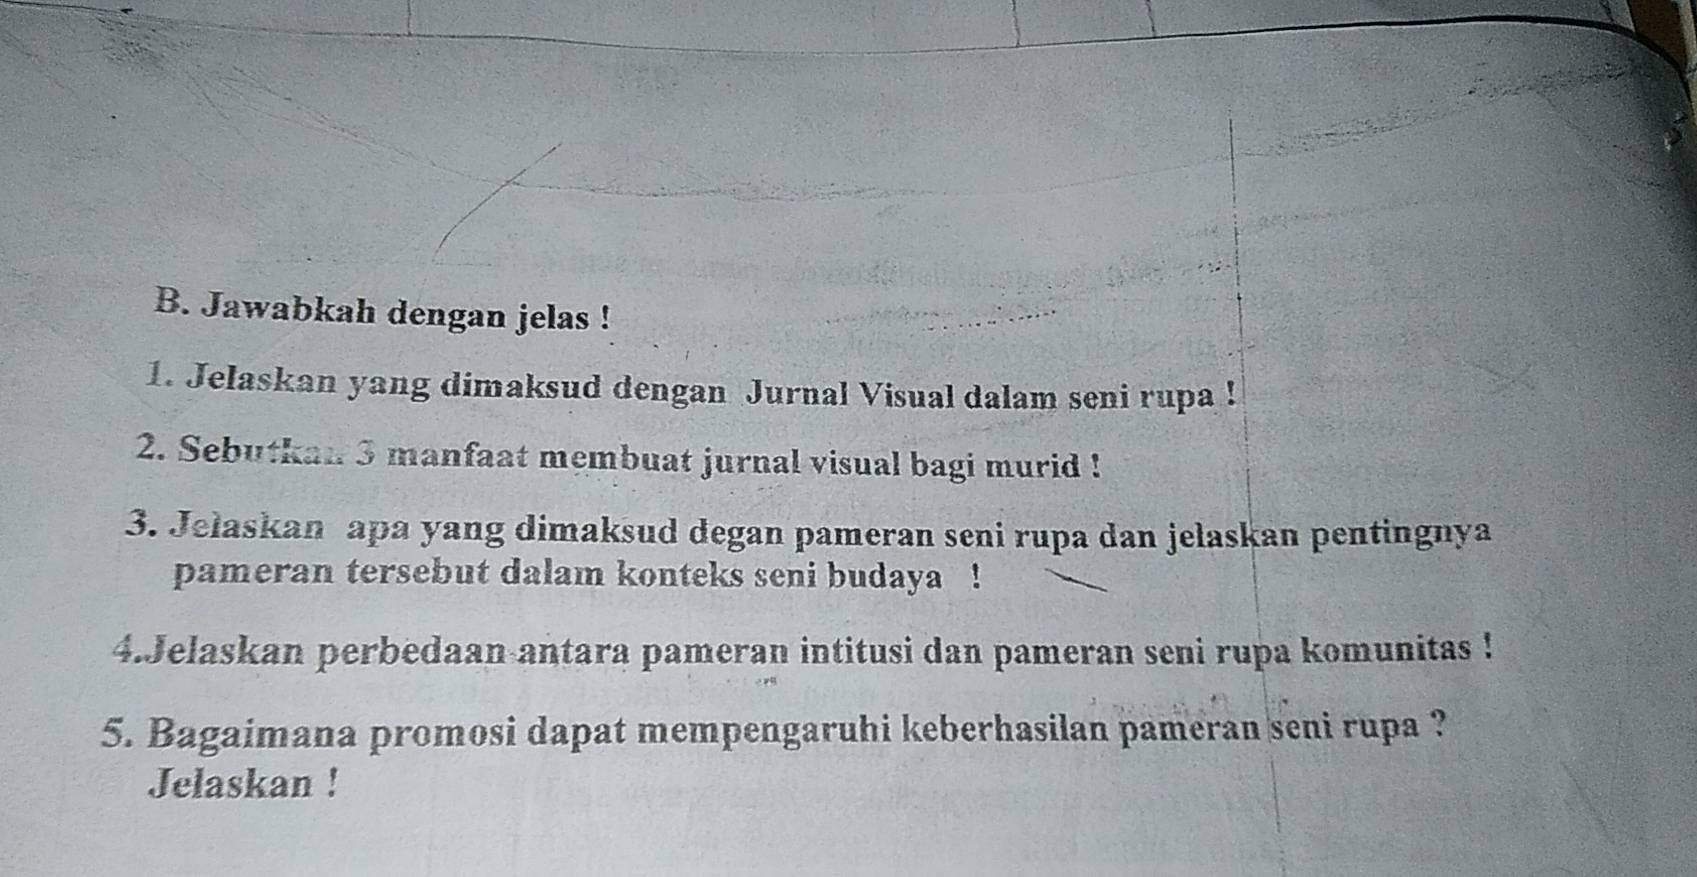 B. Jawabkah dengan jelas !
1. Jelaskan yang dimaksud dengan Jurnal Visual dalam seni rupa !
2. Sebutkan 3 manfaat membuat jurnal visual bagi murid !
3. Jelaskan apa yang dimaksud degan pameran seni rupa dan jelaskan pentingnya
pameran tersebut dalam konteks seni budaya !
4.Jelaskan perbedaan antara pameran intitusi dan pameran seni rupa komunitas !
5. Bagaimana promosi dapat mempengaruhi keberhasilan pameran seni rupa ?
Jelaskan !